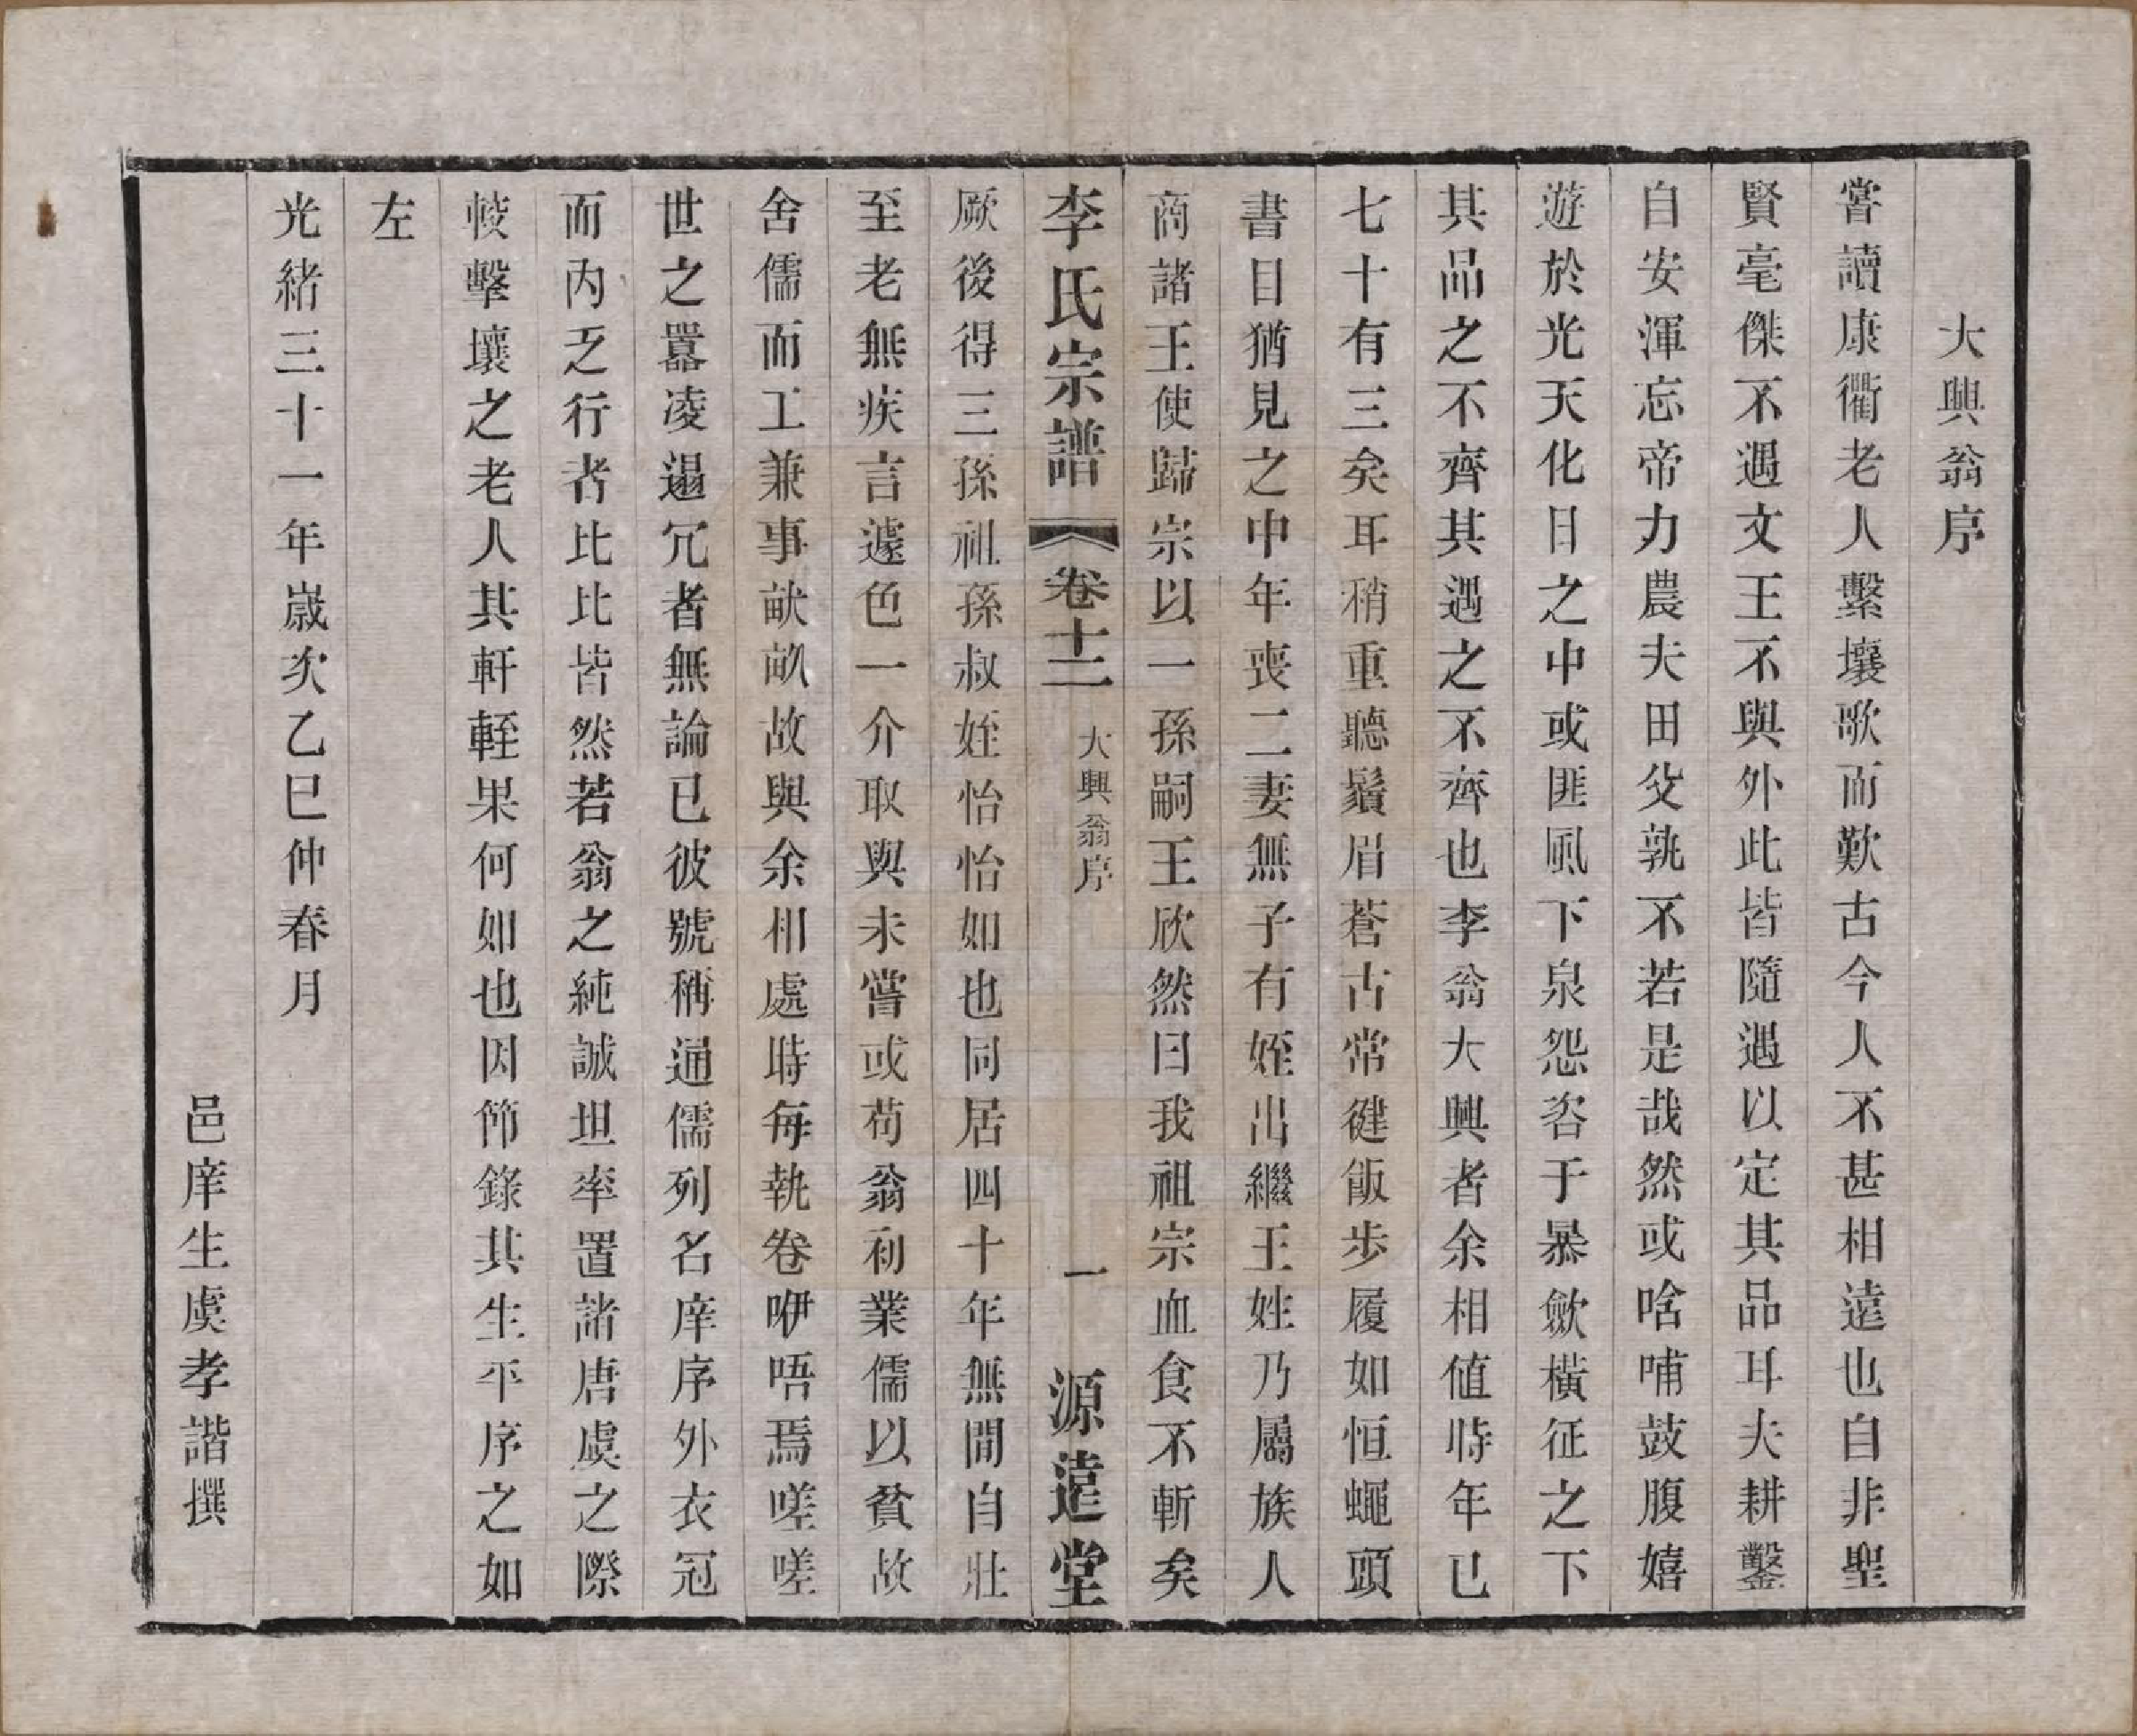 大興翁序
嘗讀康衢老人繫壤歌而歎古今人不甚相遠也自非聖
賢毫傑不遇文王不與外此皆隨遇以定其品耳夫耕鑿
自安渾忘帝力農夫田父孰不若是哉然或啥哺鼓腹嬉
遊於光天化日之中或匪風下泉怨咨于暴歛橫征之下
其品之不齊其遇之不齊也李翁大興者余相値時年已
七十有三矣耳稍重聽鬚眉蒼古常健飯步履如恒蠅頭
書目猶見之中年喪二妻無子有姪出繼王姓乃屬族人
商諸王使歸宗以一孫嗣王欣然曰我祖宗血食不斬矣
李氏宗譜 卷十二 大興翁序 一 源遠堂
厥後得三孫祖孫叔姪怡怡如也同居四十年無間自壯
至老無疾言遽色一介取與未嘗或苟翁初業儒以貧故
舍儒而工兼事畎畝故與余相處時每執卷咿唔焉嗟嗟
世之囂凌遢冗者無論已彼號稱通儒列名庠序外衣冠
而內乏行者比比皆然若翁之純誠坦率置諸唐虞之際
較擊壤之老人其軒輊果何如也因節錄其生平序之如
左
光緒三十一年歲次乙巳仲春月
邑庠生虞孝諧撰